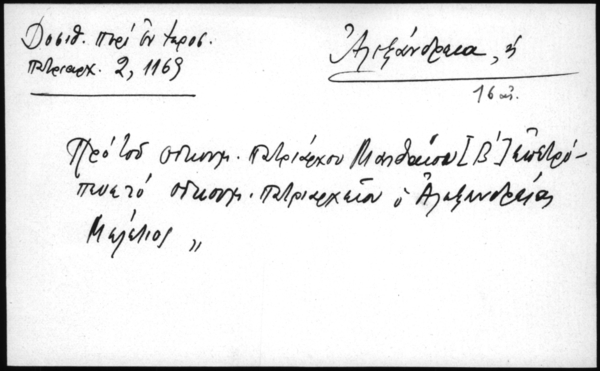 Δοσιθ. περί ἐν Ἱεροσ.
πατριαρχ. 2, 1169
Ἀλεξάνδρεια, ἡ
16 αἰ.
Πρό τοῦ οἰκουμ. πατριάρχου Ματθαίου [Β΄] ἐπετρό-
πευε τό οἰκουμ. πατριαρχεῖον ὁ Ἀλεξανδρείας
Μελέτιος „